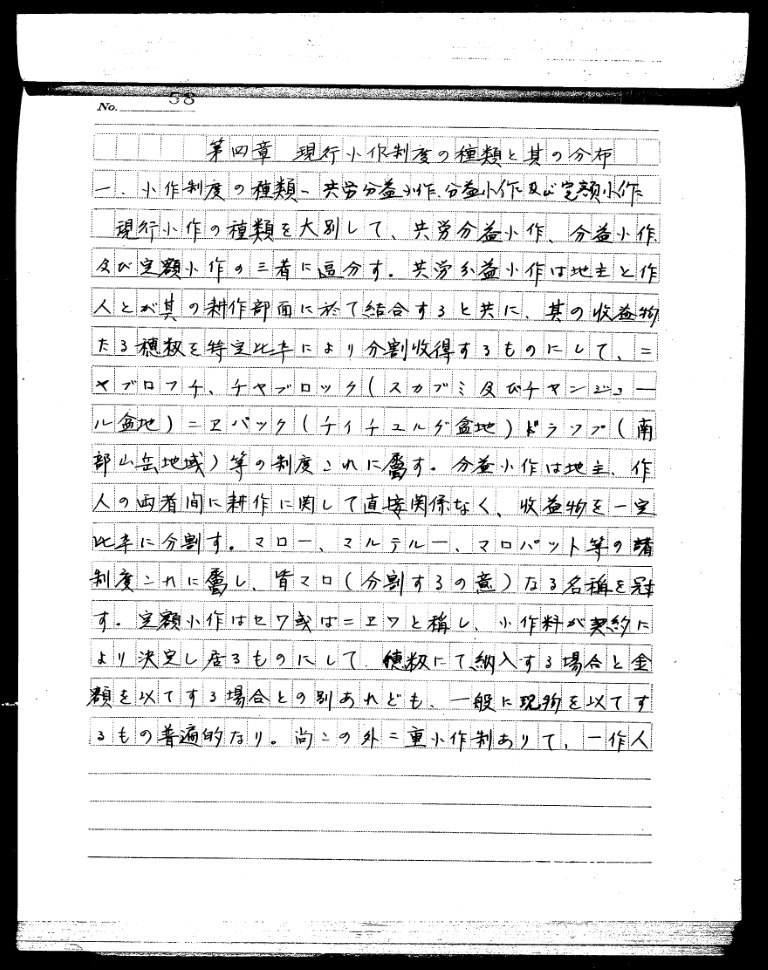 No. 58
第四章 現行小作制度の種類と其の分布
一、小作制度の種類、共労分益小作、分益小作及び定額小作
現行小作の種類を大別して、共労分益小作、分益小作
及び定額小作の三者に區分す。共労分益小作は地主と作
人とが其の耕作部面に於て結合すると共に、其の收益物
たる穂籾を特定比率により分割收得するものにして、ニ
ヤブロフチ、チヤブロック(スカブミ及びチャンジュー
ル盆地)ニヱバック(チイチュルゲ盆地)ドラフプ(南
部山岳地域)等の制度これに屬す。分益小作は地主、作
人の両者間に耕作に関して直接関係なく、收益物を一定
比率に分割す。マロー、マルテルー、マロパット等の諸
制度これに屬し、皆マロ(分割するの意)なる名稱を冠
す。定額小作はセワ或はニヱワと稱し、小作料が契約に
より決定し居るものにして、穂籾にて納入する場合と金
額を以てする場合との別あれども、一般に現物を以てす
るもの普遍的なり。尚この外二重小作制ありて、一作人